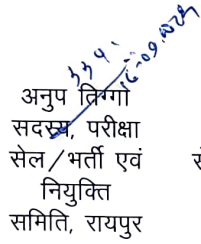 अनुप तिग्गो
सदस्य, परीक्षा
सेल/भर्ती एवं
नियुक्ति
समिति, रायपुर